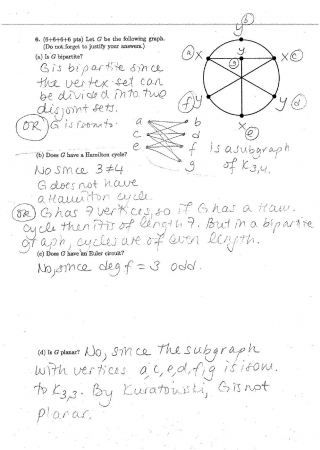 6. (6+6+6+6 pts) Let G be the following graph.
(Do not forget to justify your answers.)
(a) Is G bipartite?
G is bipartite since
the vertex set can
be divided into two
disjoint sets.
OR G is isom to
a b
c d
e f
g
is a subgraph
of K3,4.
b
y
a x
x c
y
g
f y
y d
x
e
(b) Does G have a Hamilton cycle?
No since 3≠4
G does not have
a Hamilton cycle.
OR G has 7 vertices, so if G has a Ham.
cycle then it is of length 7. But in a bipartite
graph, cycles are of even length.
(c) Does G have an Euler circuit?
No, since deg f = 3 odd.
(d) Is G planar? No, since the subgraph
with vertices a,c,e,d,f,g is isom.
to K3,3. By Kuratowski, G is not
planar.